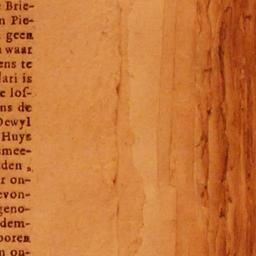 Brie-
n Pie-
geen
waar
ens te
lari is
e lof-
ns de
Dewyl
Huys
mee-
den,
r on-
evon-
geno-
dem-
ooren
n on-